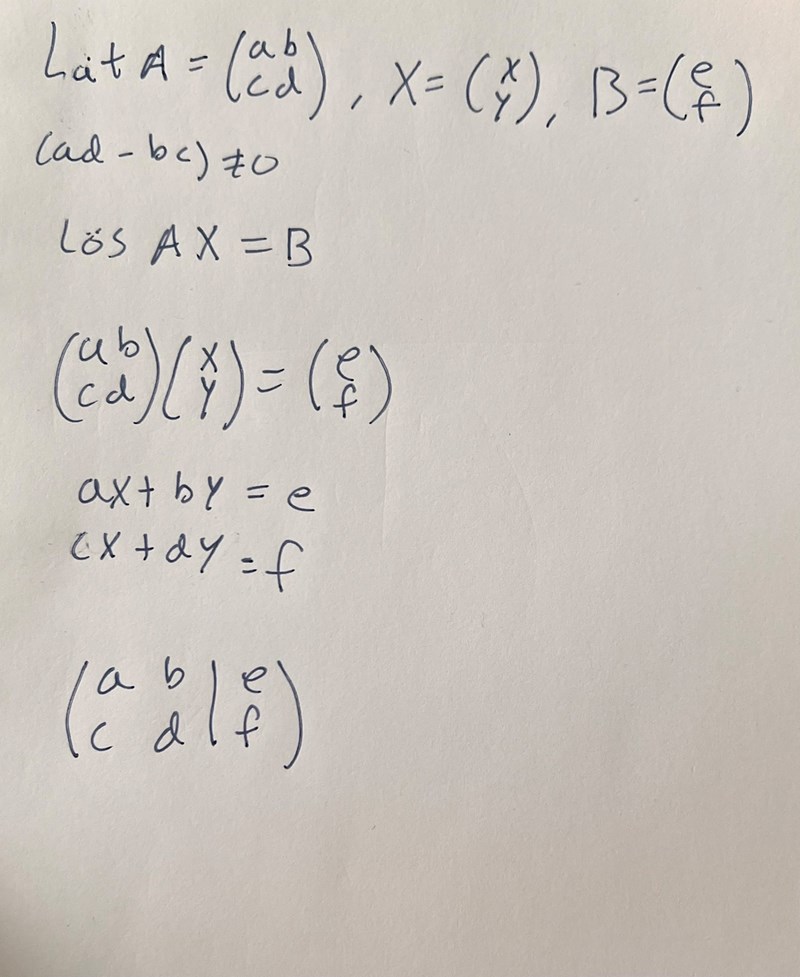 Låt A = (a b
c d), X = (x
y), B = (e
f)
(ad - bc) ≠ 0
Lös AX = B
(a b
c d)(x
y) = (e
f)
ax + by = e
cx + dy = f
(a b | e
c d | f)